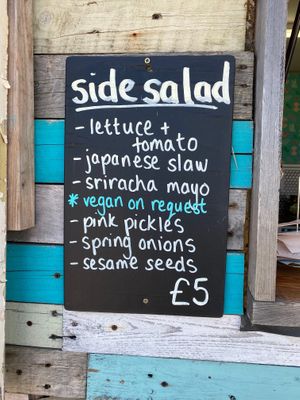 side salad
- lettuce +
tomato
- japanese slaw
- sriracha mayo
* vegan on request
- pink pickles
- spring onions
- sesame seeds
£5